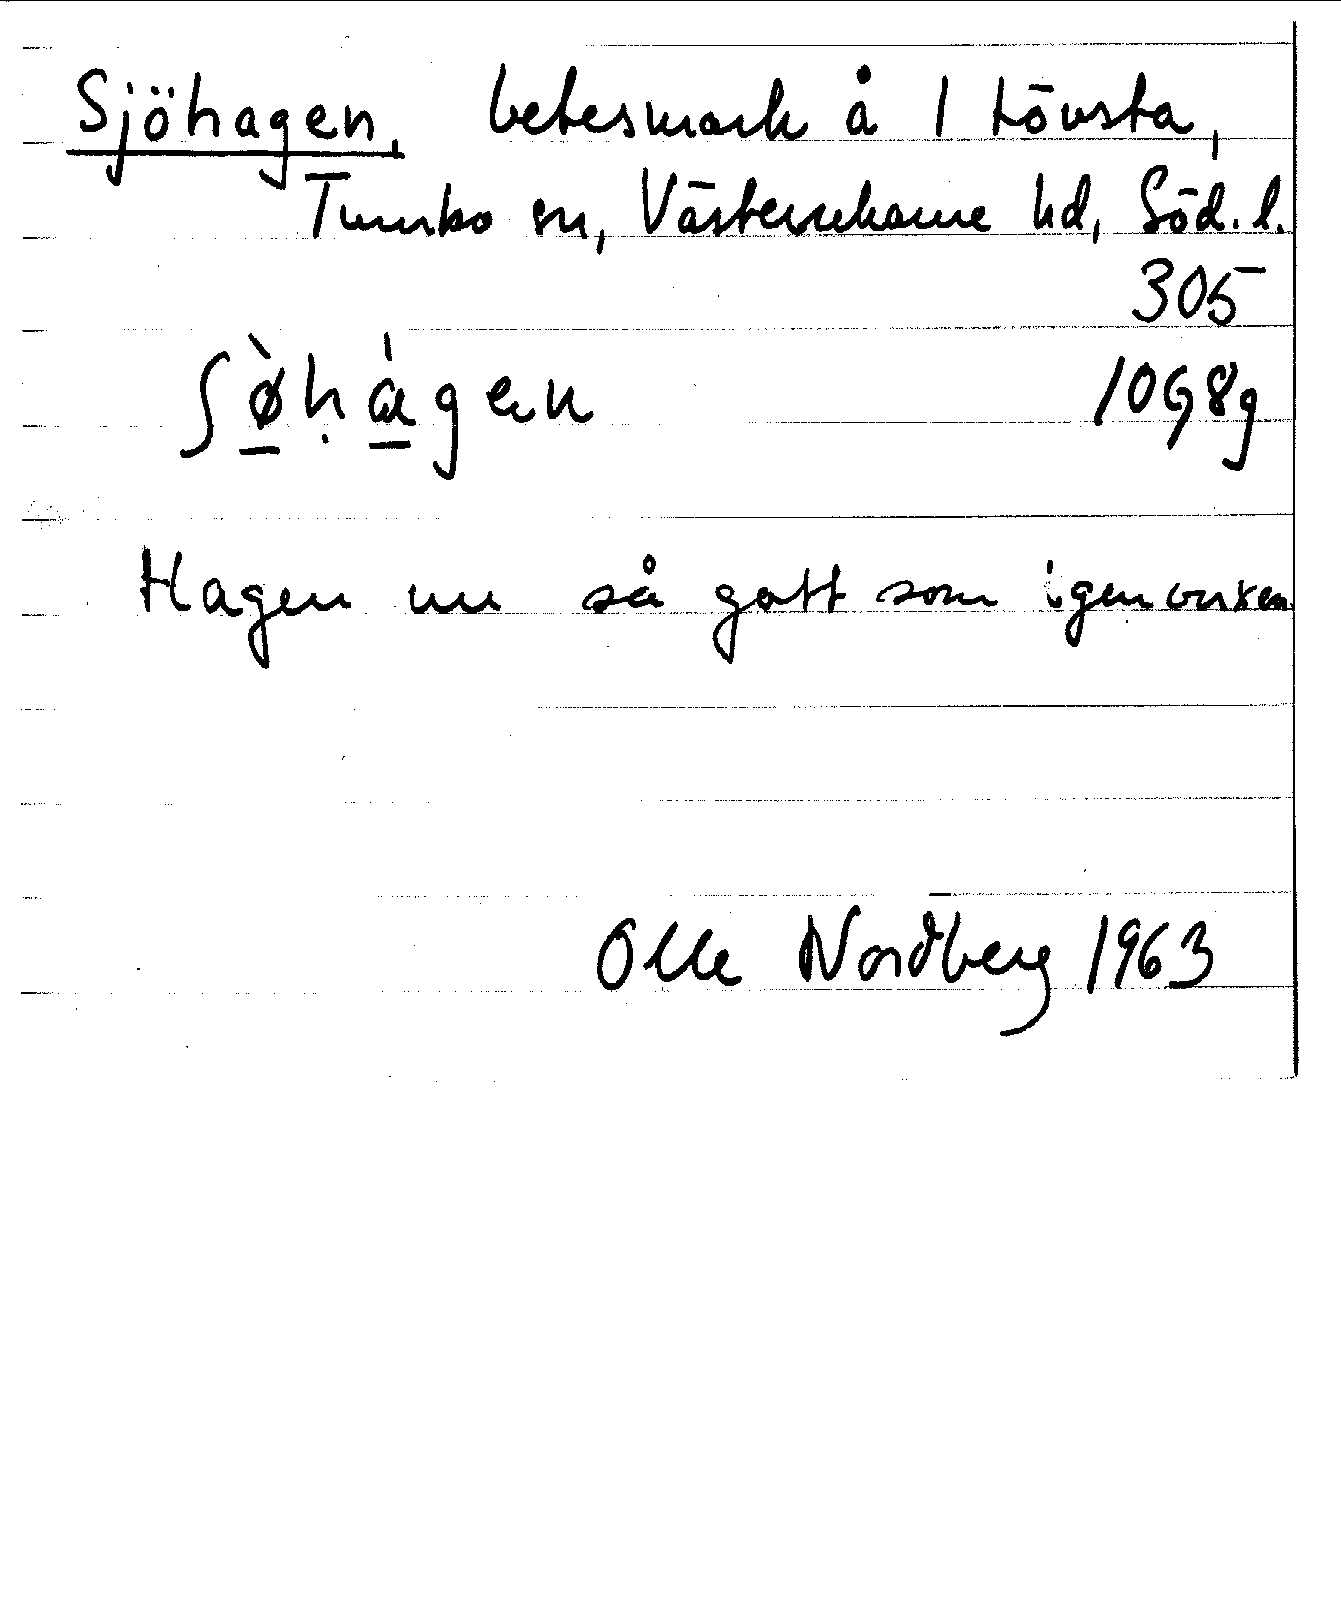 Sjöhagen, betesmark å 1 Lövsta,
Tumbo sn, Västerrekarne hd, Söd. l.
305
ʃø̀hàgen
10G8g
Hagen nu så gott som igenvuxen
Olle Nordberg 1963